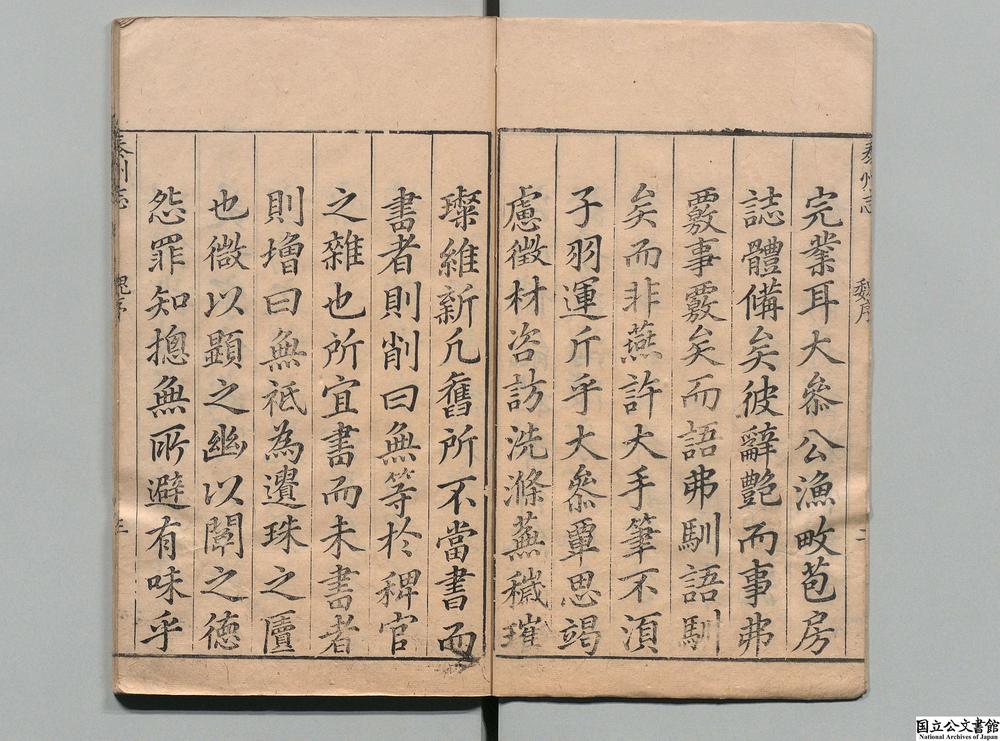 秦州志 魏序 二
完業耳大叅公漁畋苞房
誌體備矣彼辭艷而事弗
覈事覈矣而語弗馴語馴
矣而非燕許大手筆不湏
子羽運斤乎大叅覃思竭
慮徵材咨訪洗滌蕪穢璀
璨維新凢舊所不當書而
書者則削曰無等於稗官
之雜也所宜書而未書者
則增曰無祗為遺珠之牘
也微以顯之幽以闡之德
怨罪知揔無所避有味乎
秦州志
国立公文書館
National Archives of Japan